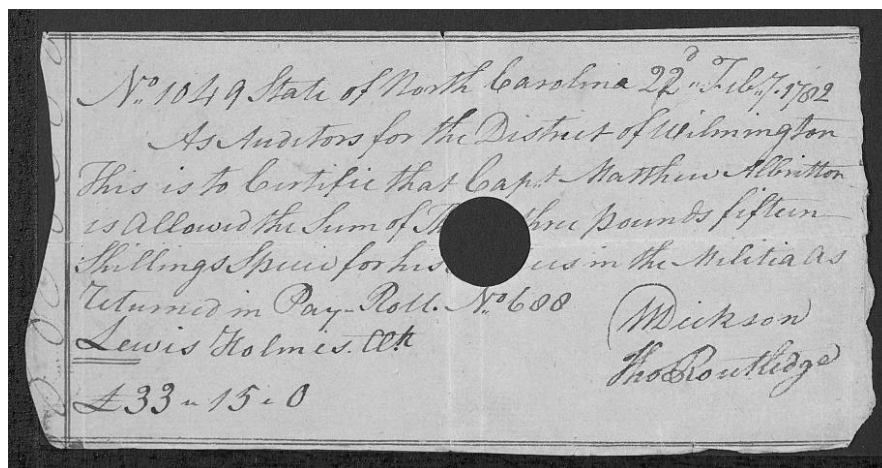 No. 1049 State of North Carolina 22d. Feby. 1782
As Auditors for the District of Wilmington
This is to Certifie that Capt. Matthew Albritton
is Allowed the Sum of Th three pounds fifteen
Shillings Specie for his es in the Militia as
Returned in Pay-Roll. No 688
Lewis Holmes. Clk
£33 " 15 " 0
WDickson
Tho Routledge